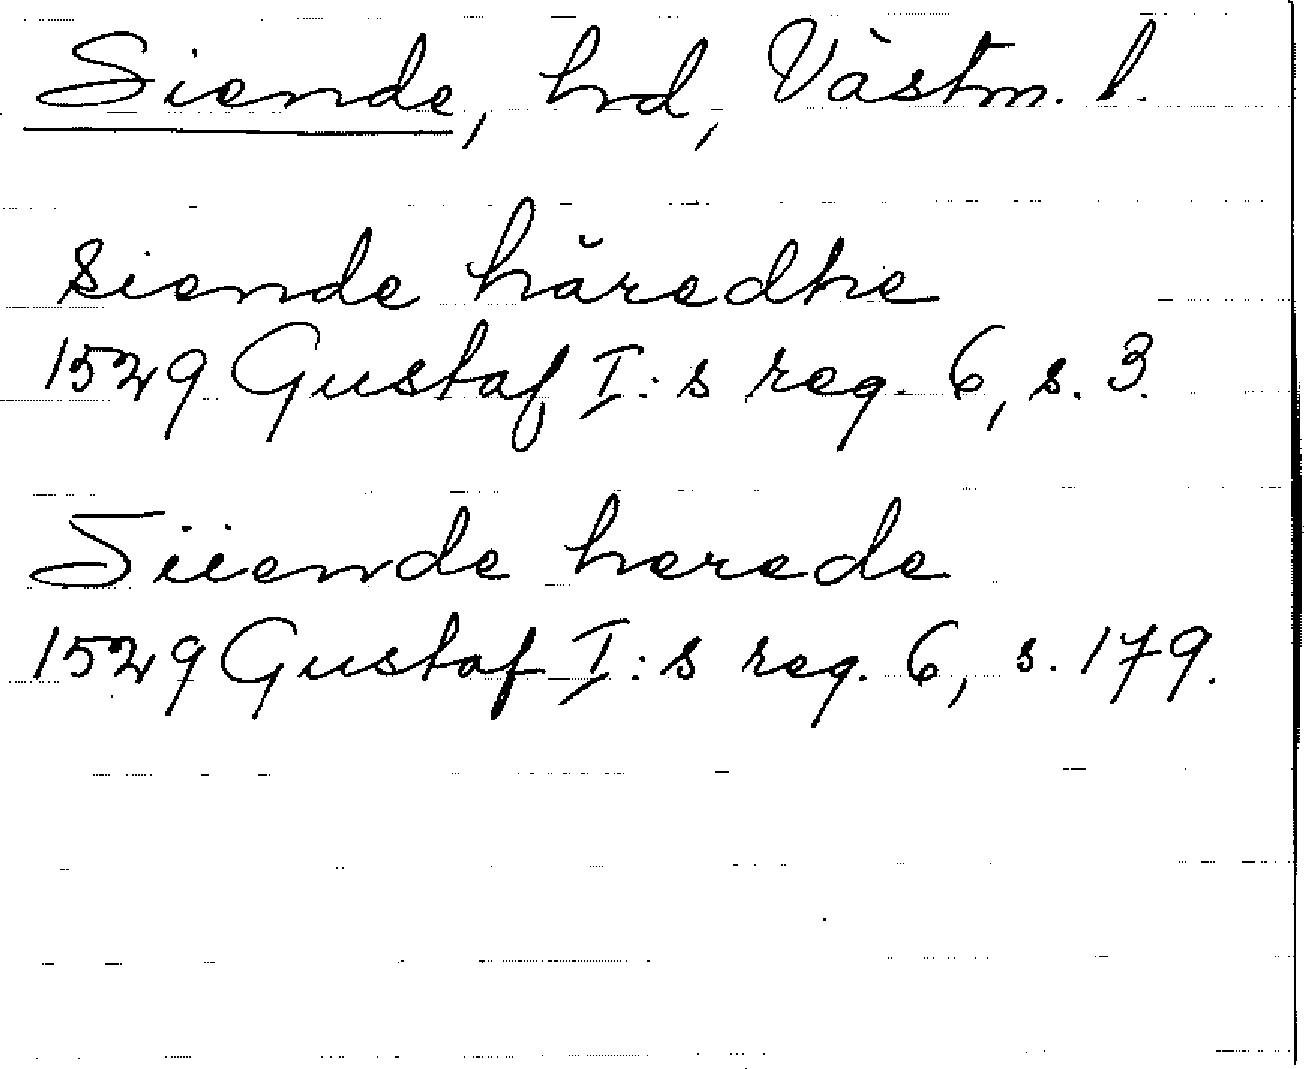 Siende, hrd, Västm. l.
siende häredhe
1529 Gustaf I:s reg. 6, s. 3.
Siiende herede
1529 Gustaf I:s reg. 6, s. 179.